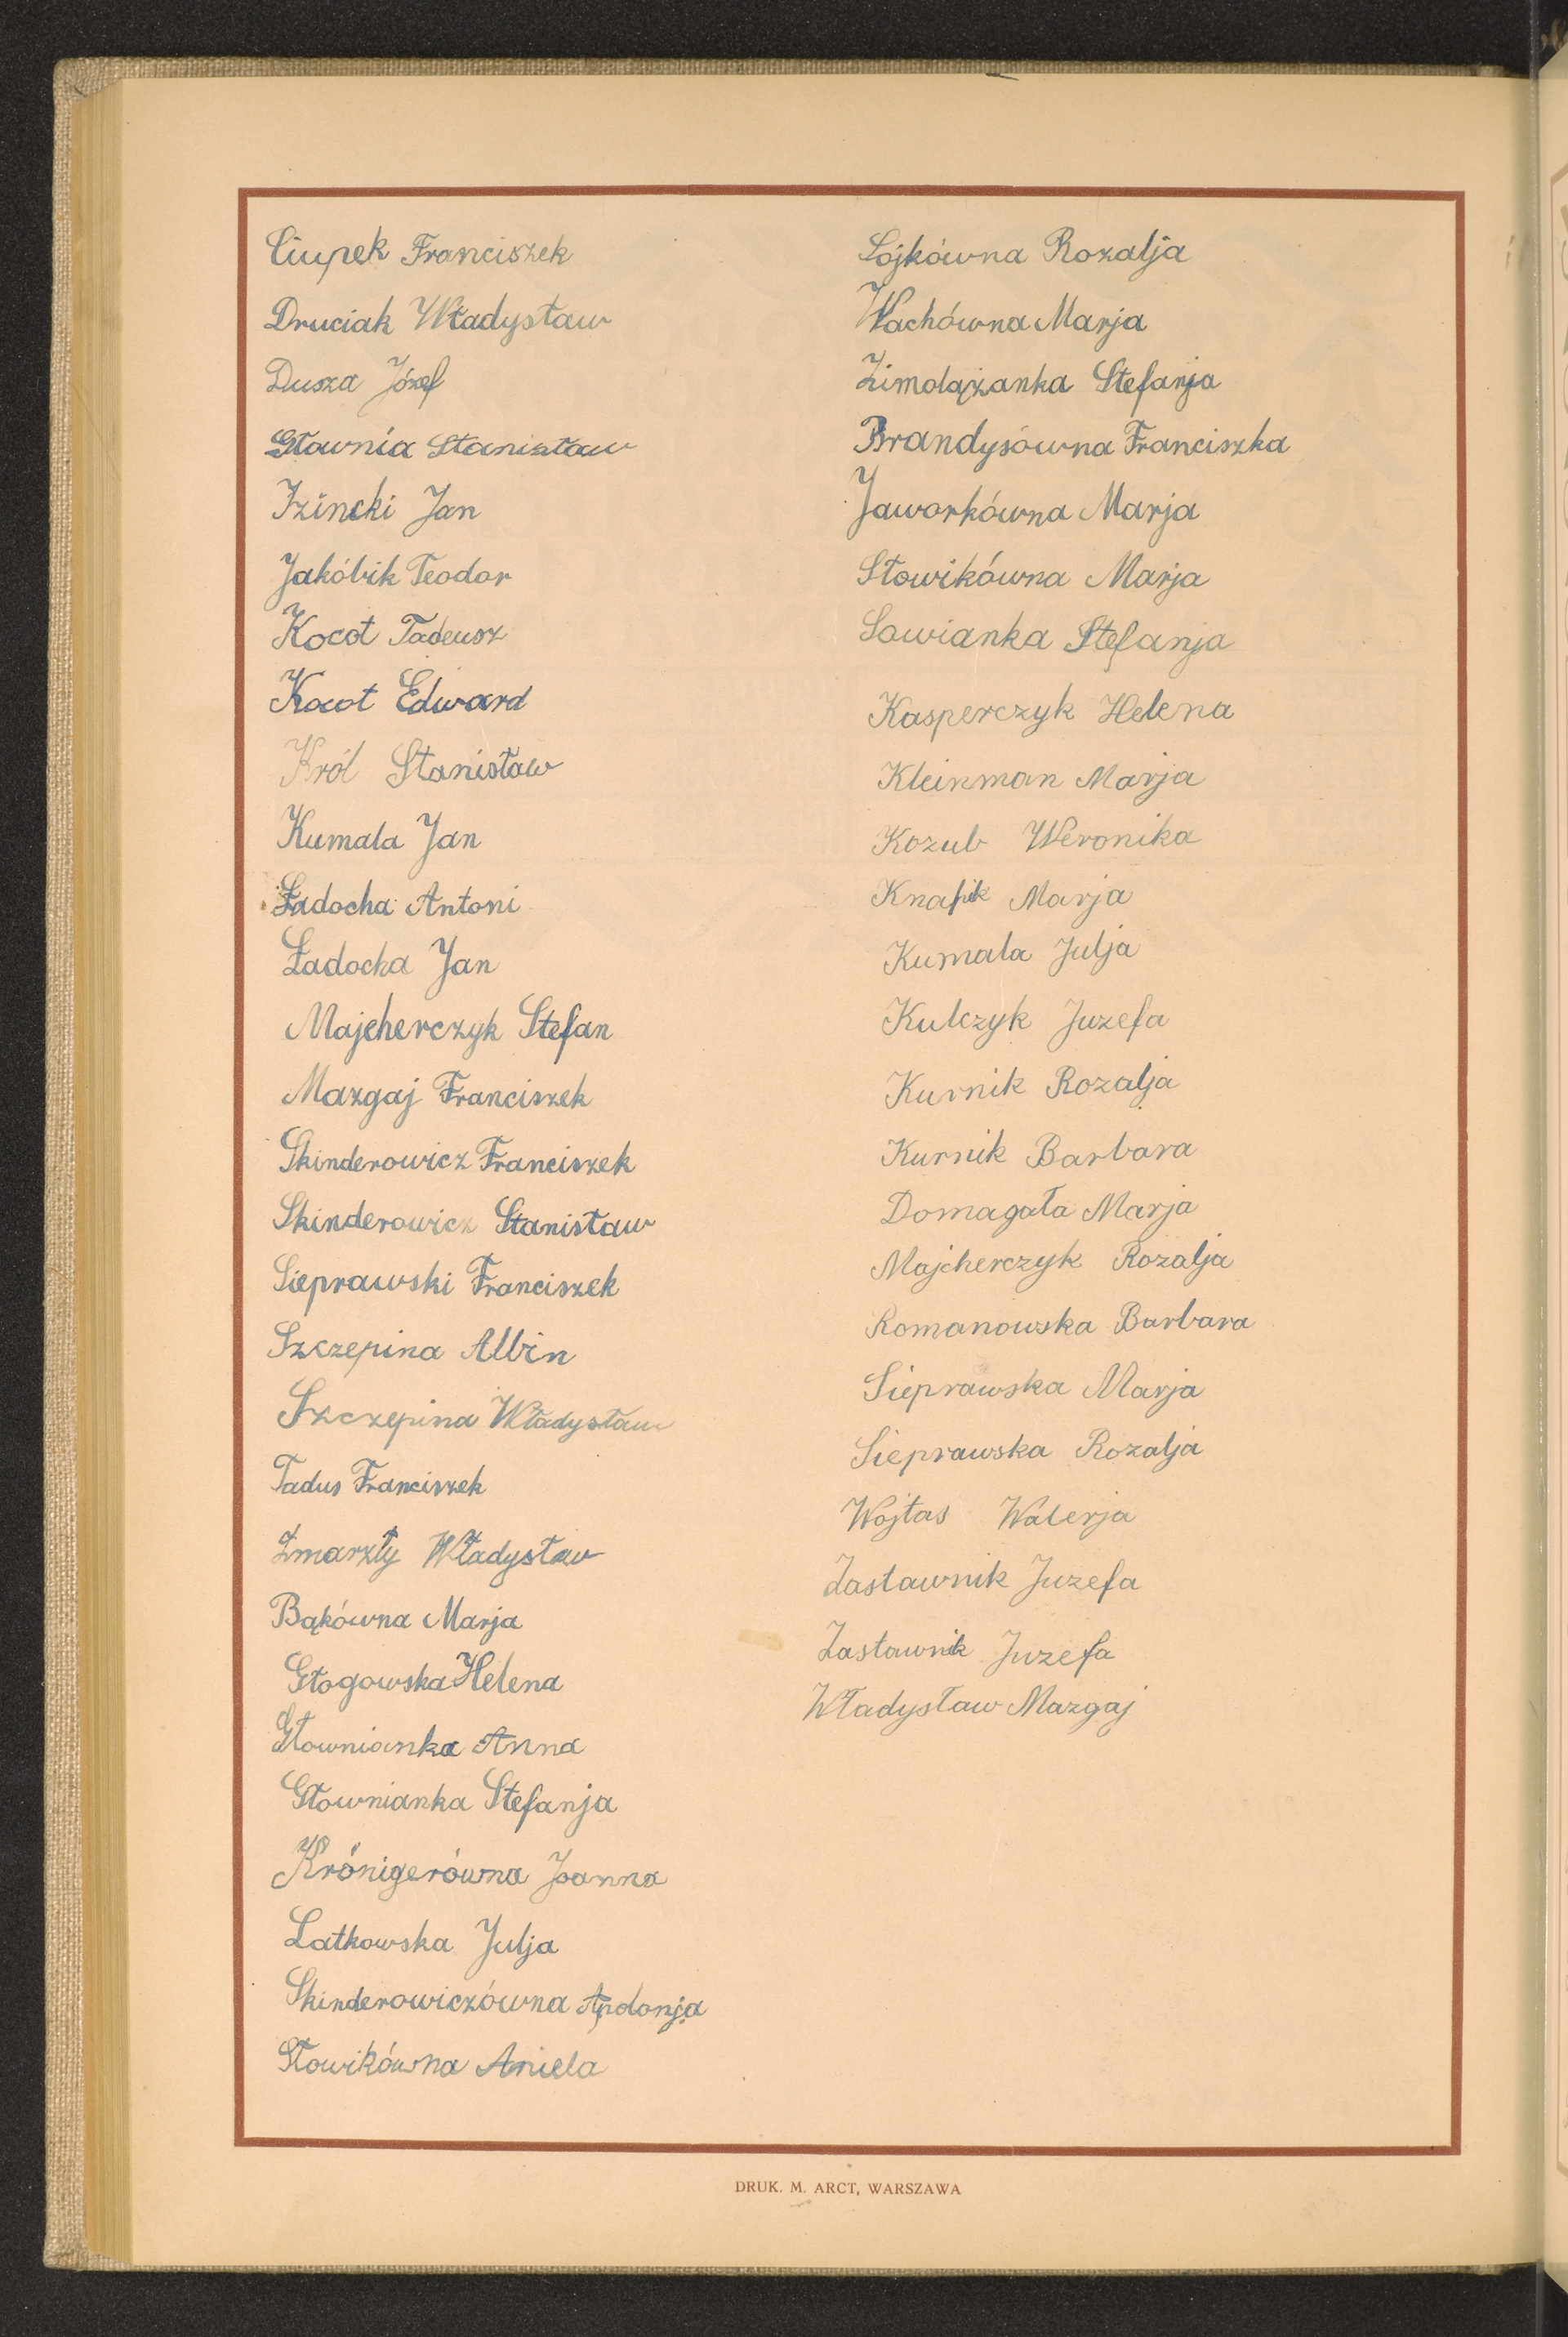 Ciupek Franciszek
Druciak Władysław
Dusza Józef
Głownia Stanisław
Izincki Jan
Jakóbik Teodor
Kocot Tadeusz
Kocot Edward
Król Stanisław
Kumala Jan
Ładocha Antoni
Ładocha Jan
Majcherczyk Stefan
Mazgaj Franciszek
Skinderowicz Franciszek
Skinderowicz Stanisław
Sieprawski Franciszek
Szczepina Albin
Szczepina Władysław
Tadus Franciszek
Zmarzły Władysław
Bąkówna Marja
Głogowska Helena
Głownianka Anna
Głownianka Stefanja
Krönigerówna Joanna
Latkowska Julja
Skinderowiczówna Apolonja
Słowikówna Aniela
Sójkówna Rozalja
Wachówna Marja
Zimolążanka Stefanja
Brandysówna Franciszka
Jaworkówna Marja
Słowikówna Marja
Sowianka Stefanja
Kasperczyk Helena
Kleinman Marja
Kozub Weronika
Knapik Marja
Kumala Julja
Kulczyk Juzefa
Kurnik Rozalja
Kurnik Barbara
Domagała Marja
Majcherczyk Rozalja
Romanowska Barbara
Sieprawska Marja
Sieprawska Rozalja
Wojtas Walerja
Zastawnik Juzefa
Zastawnik Juzefa
Władysław Mazgaj
DRUK. M. ARCT, WARSZAWA